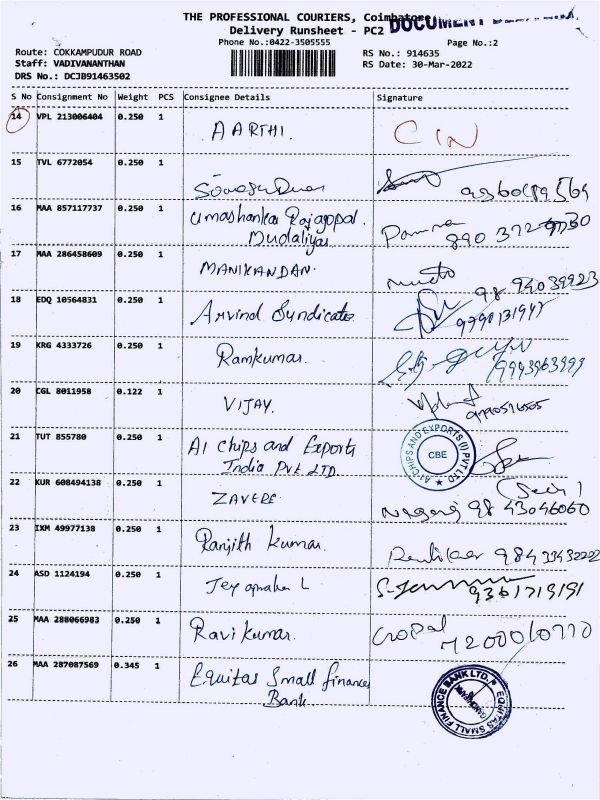 THE PROFESSIONAL COURIERS, Coimbatore
Delivery Runsheet - PC2
DOCUMENT
Phone No.:0422-3505555
Page No.:2
Route: COKKAMPUDUR ROAD
RS No.: 914635
Staff: VADIVANANTHAN
RS Date: 30-Mar-2022
DRS No.: DCJB91463502
S No Consignment No Weight PCS Consignee Details Signature
14 VPL 213006404 0.250 1 AARTHI. CIN
15 TVL 6772054 0.250 1
16 MAA 857117737 0.250 1 Umashankar Rajagopal.
Mudaliyar
17 MAA 286458609 0.250 1 MANIKANDAN.
98 94039923
18 EDQ 10564831 0.250 1 Arvind Syndicate
9790131947
19 KRG 4333726 0.250 1 Ramkumar.
9943963999
20 CGL 8011958 0.122 1 VIJAY.
21 TUT 855780 0.250 1 A1 Chips and Exports
India Pvt LTD.
A1 CHIPS AND EXPORTS (I) PVT LTD
CBE
22 KUR 608494138 0.250 1 ZAVERE
Nagaraj 98 43046060
23 IXM 49977138 0.250 1 Ranjith kumar.
24 ASD 1124194 0.250 1
9361719191
25 MAA 288066983 0.250 1 Ravikumar. Gopal
26 MAA 287087569 0.345 1 Equitas Small finance
Bank
EQUITAS SMALL FINANCE BANK LTD.